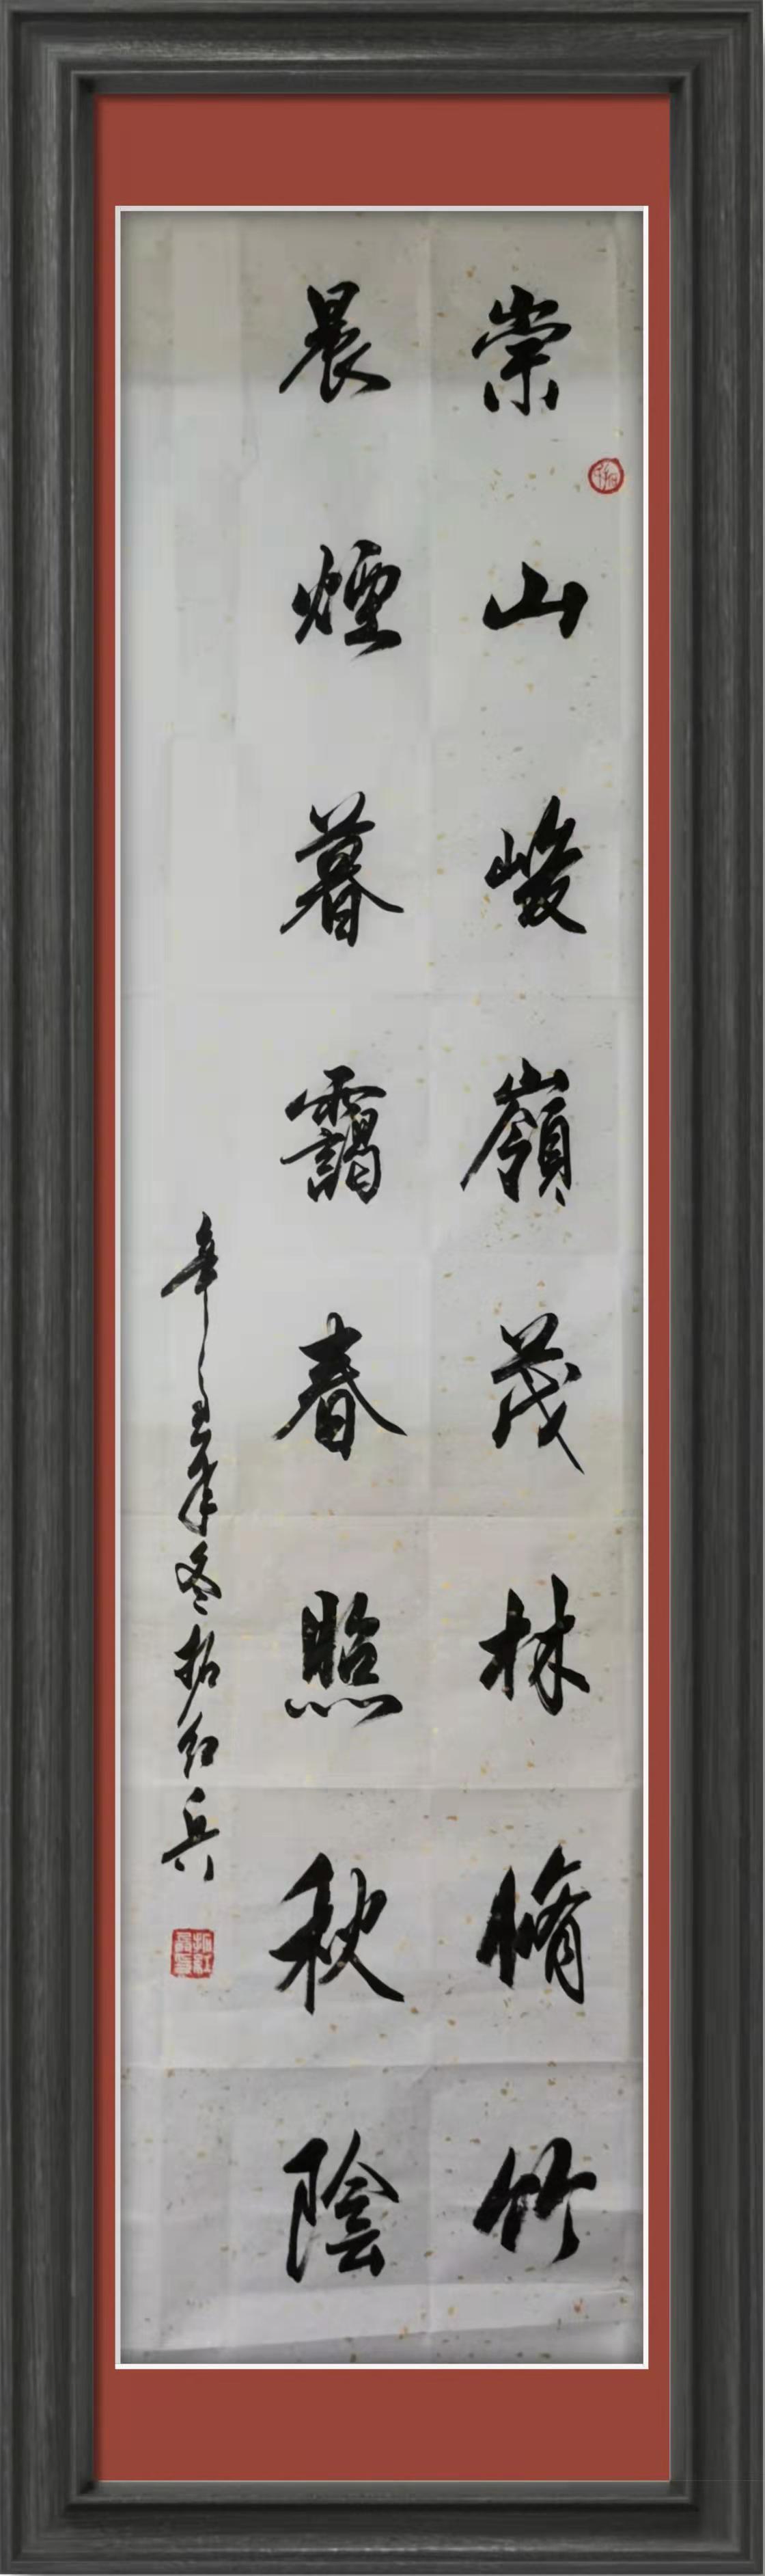 崇山峻嶺茂林脩竹
晨煙暮靄春照秋陰
辛丑年冬拓红兵